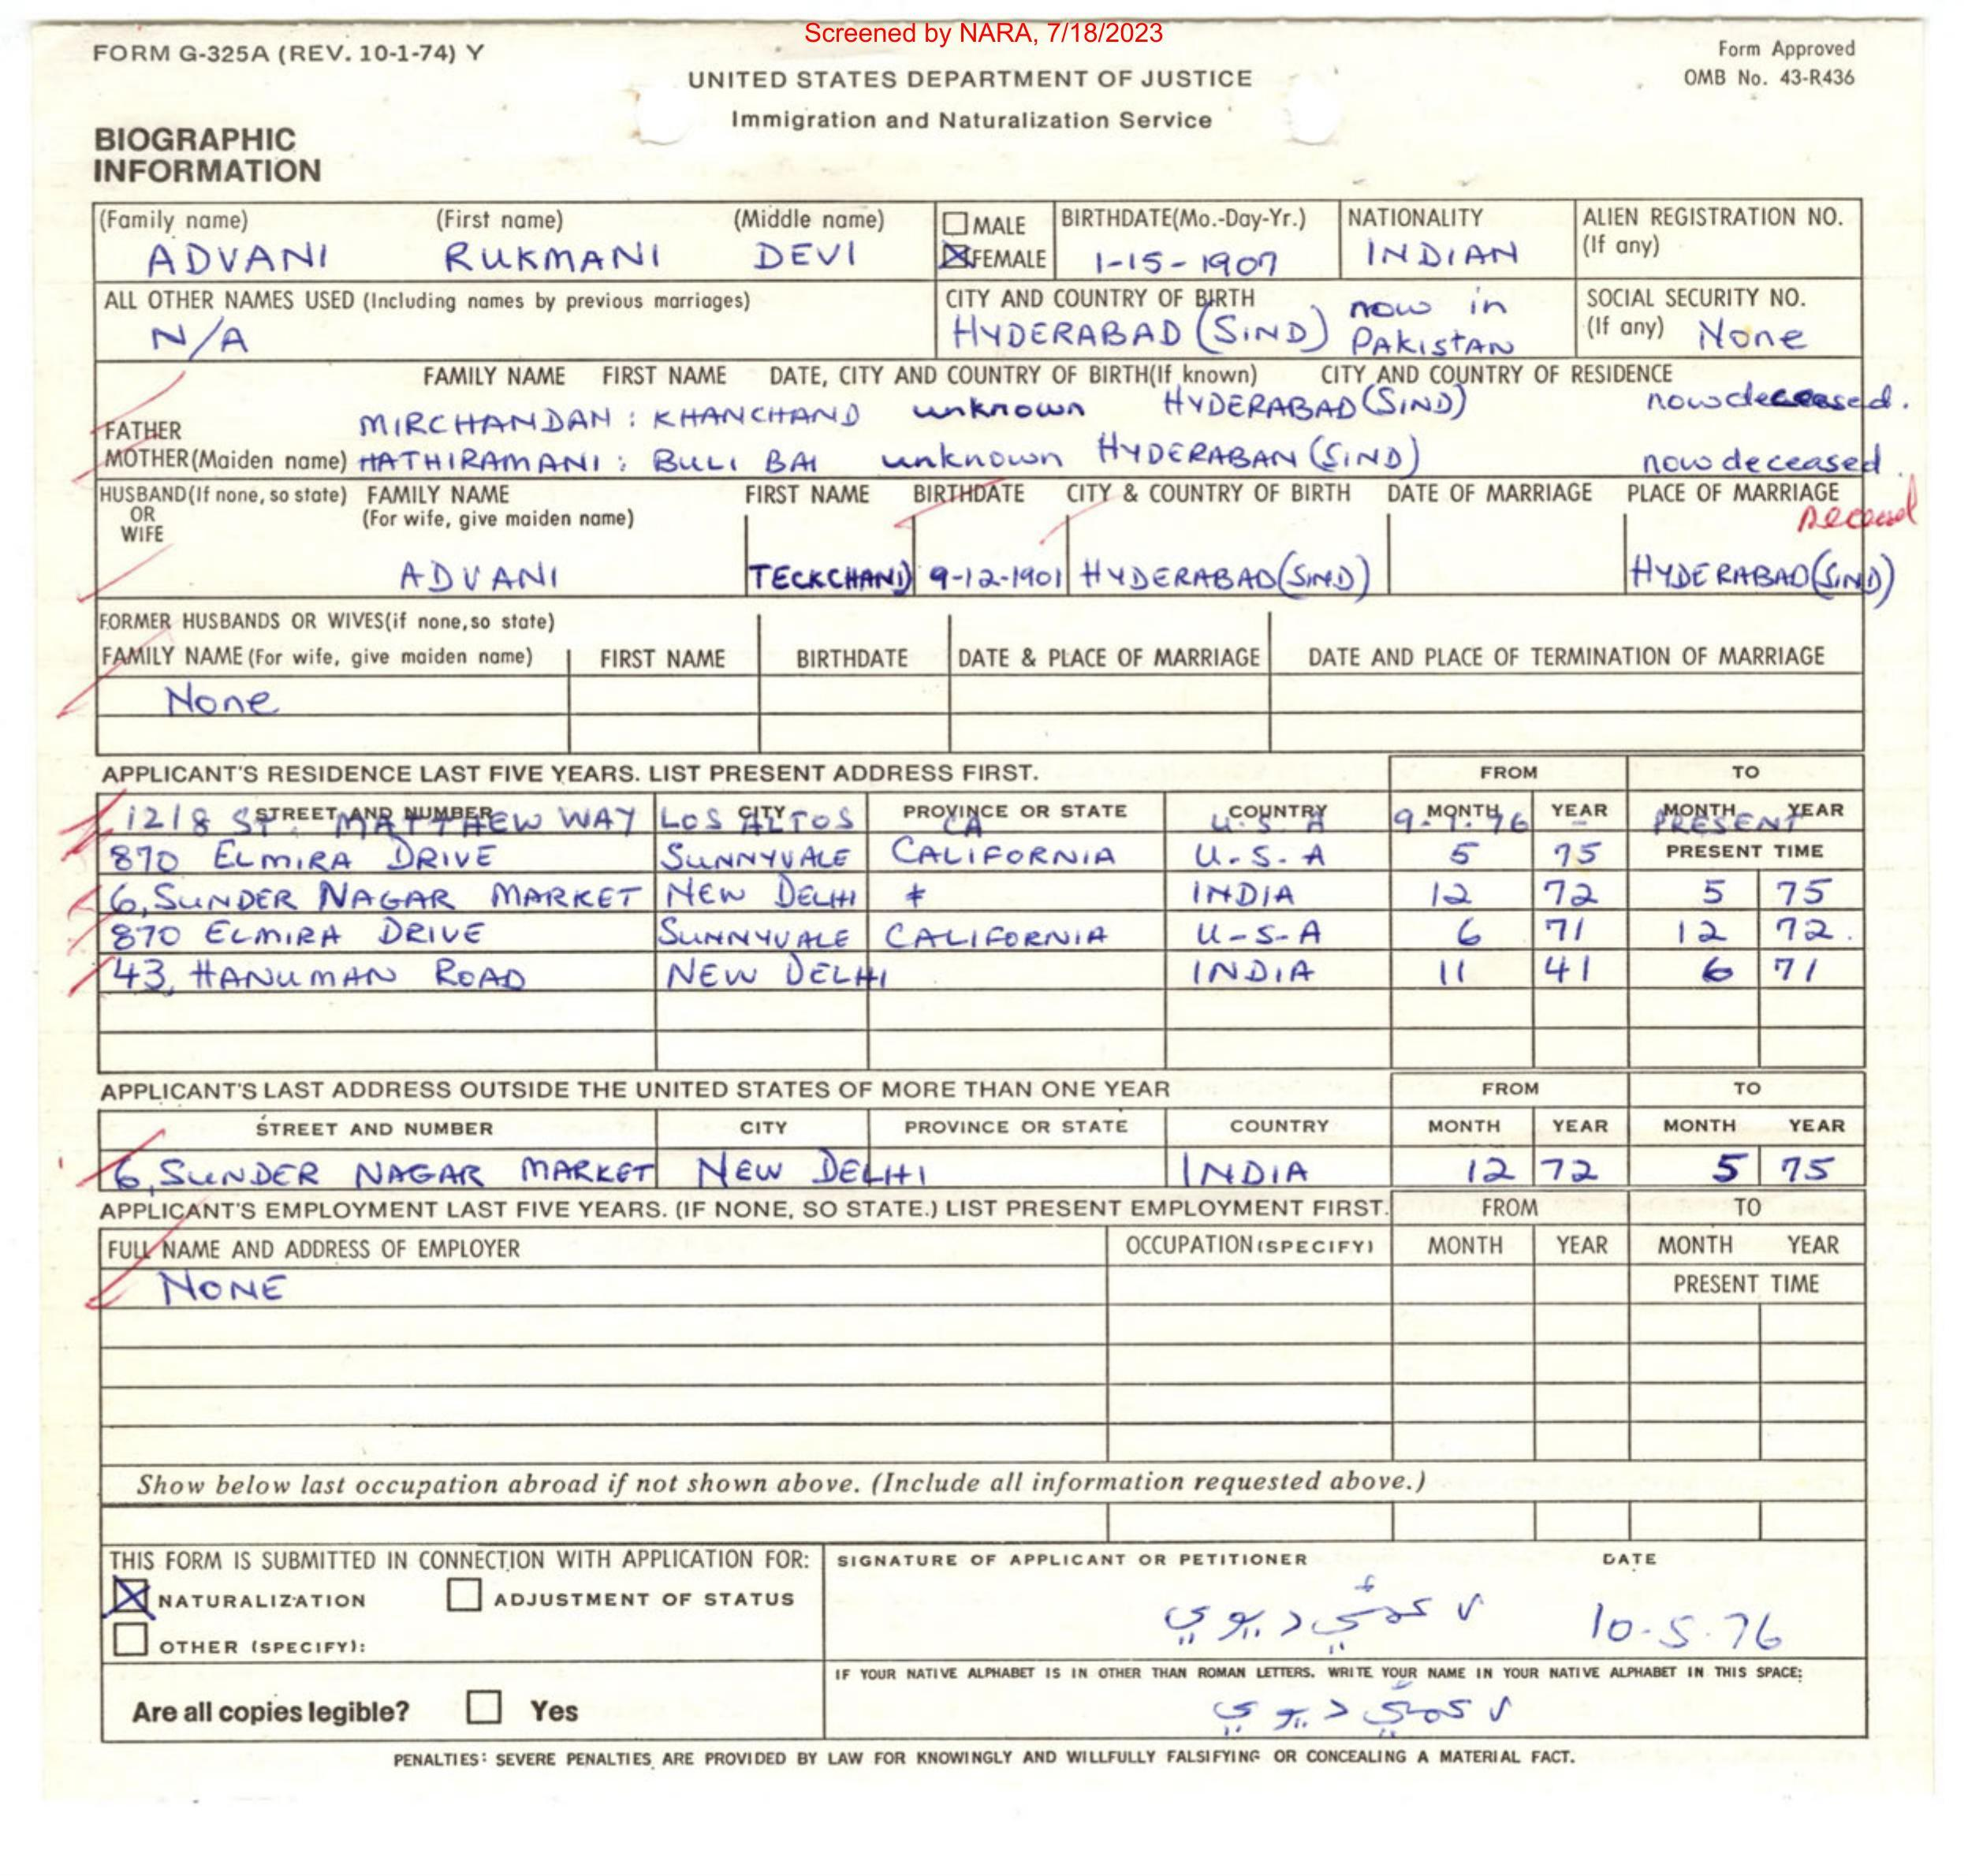 Screened by NARA, 7/18/2023
FORM G-325A (REV. 10-1-74) Y
Form Approved
OMB No. 43-R436
UNITED STATES DEPARTMENT OF JUSTICE
Immigration and Naturalization Service
BIOGRAPHIC
INFORMATION
(Family name) (First name) (Middle name) MALE BIRTHDATE(Mo.-Day-Yr.) NATIONALITY ALIEN REGISTRATION NO.
(If any)
ADVANI RUKMANI DEVI FEMALE 1-15-1907 INDIAN
ALL OTHER NAMES USED (Including names by previous marriages) CITY AND COUNTRY OF BIRTH SOCIAL SECURITY NO.
N/A HYDERABAD (SIND) now in PAKISTAN (If any) None
FAMILY NAME FIRST NAME DATE, CITY AND COUNTRY OF BIRTH(If known) CITY AND COUNTRY OF RESIDENCE
FATHER MIRCHANDAN: KHANCHAND unknown HYDERABAD(SIND) now deceased.
MOTHER(Maiden name) HATHIRAMANI: BULI BAI unknown HYDERABAN (SIND) now deceased
HUSBAND(If none, so state) FAMILY NAME FIRST NAME BIRTHDATE CITY & COUNTRY OF BIRTH DATE OF MARRIAGE PLACE OF MARRIAGE
OR (For wife, give maiden name)
WIFE
ADVANI TECKCHAND 9-12-1901 HYDERABAD(SIND) HYDERABAD(SIND)
FORMER HUSBANDS OR WIVES(if none,so state)
FAMILY NAME (For wife, give maiden name) FIRST NAME BIRTHDATE DATE & PLACE OF MARRIAGE DATE AND PLACE OF TERMINATION OF MARRIAGE
None
APPLICANT'S RESIDENCE LAST FIVE YEARS. LIST PRESENT ADDRESS FIRST. FROM TO
STREET AND NUMBER CITY PROVINCE OR STATE COUNTRY MONTH YEAR MONTH YEAR
1218 ST. MATTHEW WAY LOS ALTOS CA U.S.A 9.1.76 - PRESENT
870 ELMIRA DRIVE SUNNYVALE CALIFORNIA U.S.A 5 75 PRESENT TIME
6, SUNDER NAGAR MARKET NEW DELHI INDIA 12 72 5 75
870 ELMIRA DRIVE SUNNYVALE CALIFORNIA U-S-A 6 71 12 72.
43, HANUMAN ROAD NEW DELHI INDIA 11 41 6 71
APPLICANT'S LAST ADDRESS OUTSIDE THE UNITED STATES OF MORE THAN ONE YEAR FROM TO
STREET AND NUMBER CITY PROVINCE OR STATE COUNTRY MONTH YEAR MONTH YEAR
6, SUNDER NAGAR MARKET NEW DELHI INDIA 12 72 5 75
APPLICANT'S EMPLOYMENT LAST FIVE YEARS. (IF NONE, SO STATE.) LIST PRESENT EMPLOYMENT FIRST. FROM TO
FULL NAME AND ADDRESS OF EMPLOYER OCCUPATION (SPECIFY) MONTH YEAR MONTH YEAR
NONE PRESENT TIME
Show below last occupation abroad if not shown above. (Include all information requested above.)
THIS FORM IS SUBMITTED IN CONNECTION WITH APPLICATION FOR: SIGNATURE OF APPLICANT OR PETITIONER DATE
NATURALIZATION ADJUSTMENT OF STATUS
10.5.76
OTHER (SPECIFY):
IF YOUR NATIVE ALPHABET IS IN OTHER THAN ROMAN LETTERS. WRITE YOUR NAME IN YOUR NATIVE ALPHABET IN THIS SPACE:
Are all copies legible? Yes
PENALTIES: SEVERE PENALTIES ARE PROVIDED BY LAW FOR KNOWINGLY AND WILLFULLY FALSIFYING OR CONCEALING A MATERIAL FACT.